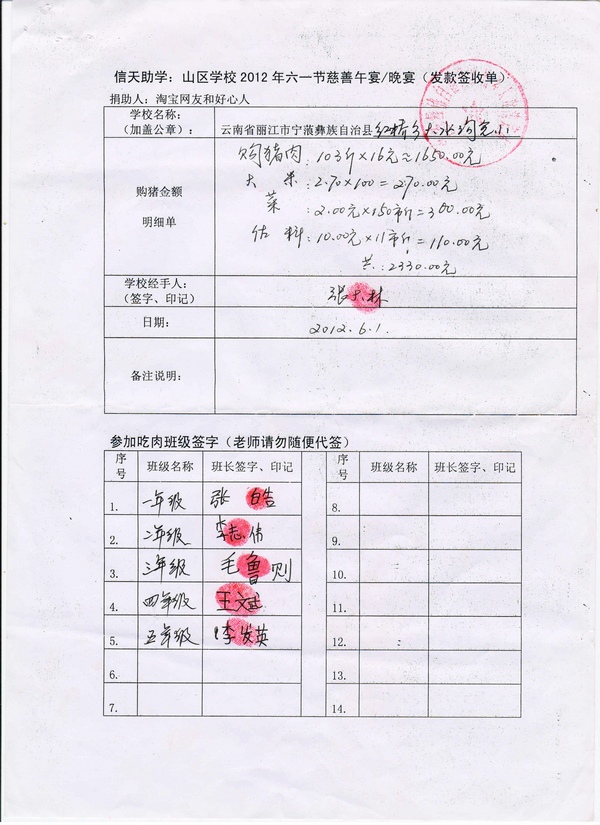 信天助学：山区学校2012年六一节慈善午宴/晚宴（发款签收单）
捐助人：淘宝网友和好心人
学校名称：
（加盖公章）：
云南省丽江市宁蒗彝族自治县红桥乡大水沟完小
购猪金额
明细单
购猪肉：103斤×16元≈1650.00元
大米：2.70×100=270.00元
菜：2.00元×150市斤=300.00元
佐料：10.00元×11市斤=110.00元
共：2330.00元
学校经手人：
（签字、印记）
张大林
日期：
2012.6.1.
备注说明：
参加吃肉班级签字（老师请勿随便代签）
序号 班级名称 班长签字、印记 序号 班级名称 班长签字、印记
1. 一年级 张皓 8.
2. 二年级 李志伟 9.
3. 三年级 毛鲁则 10.
4. 四年级 王文武 11.
5. 五年级 李发英 12.
6. 13.
7. 14.